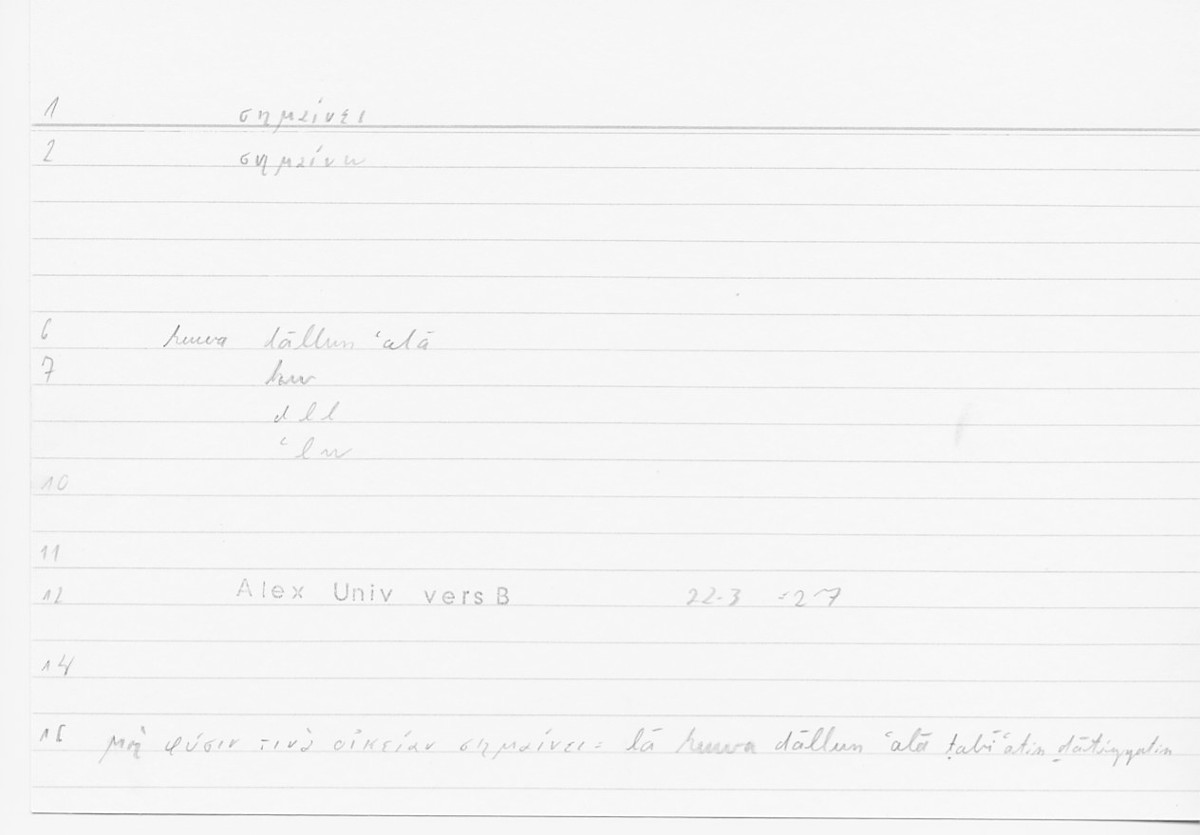 1 σημαίνει
2 σημαίνω
6 huwa dāllun ʿalā
7 hw
dll
ʿlw
10
11
12 Alex Univ vers B 22.3 =217
14
15 μὴ φύσιν τινὰ οἰκείαν σημαίνει = lā huwa dāllun ʿalā ṭabīʿatin ḏātiyyatin